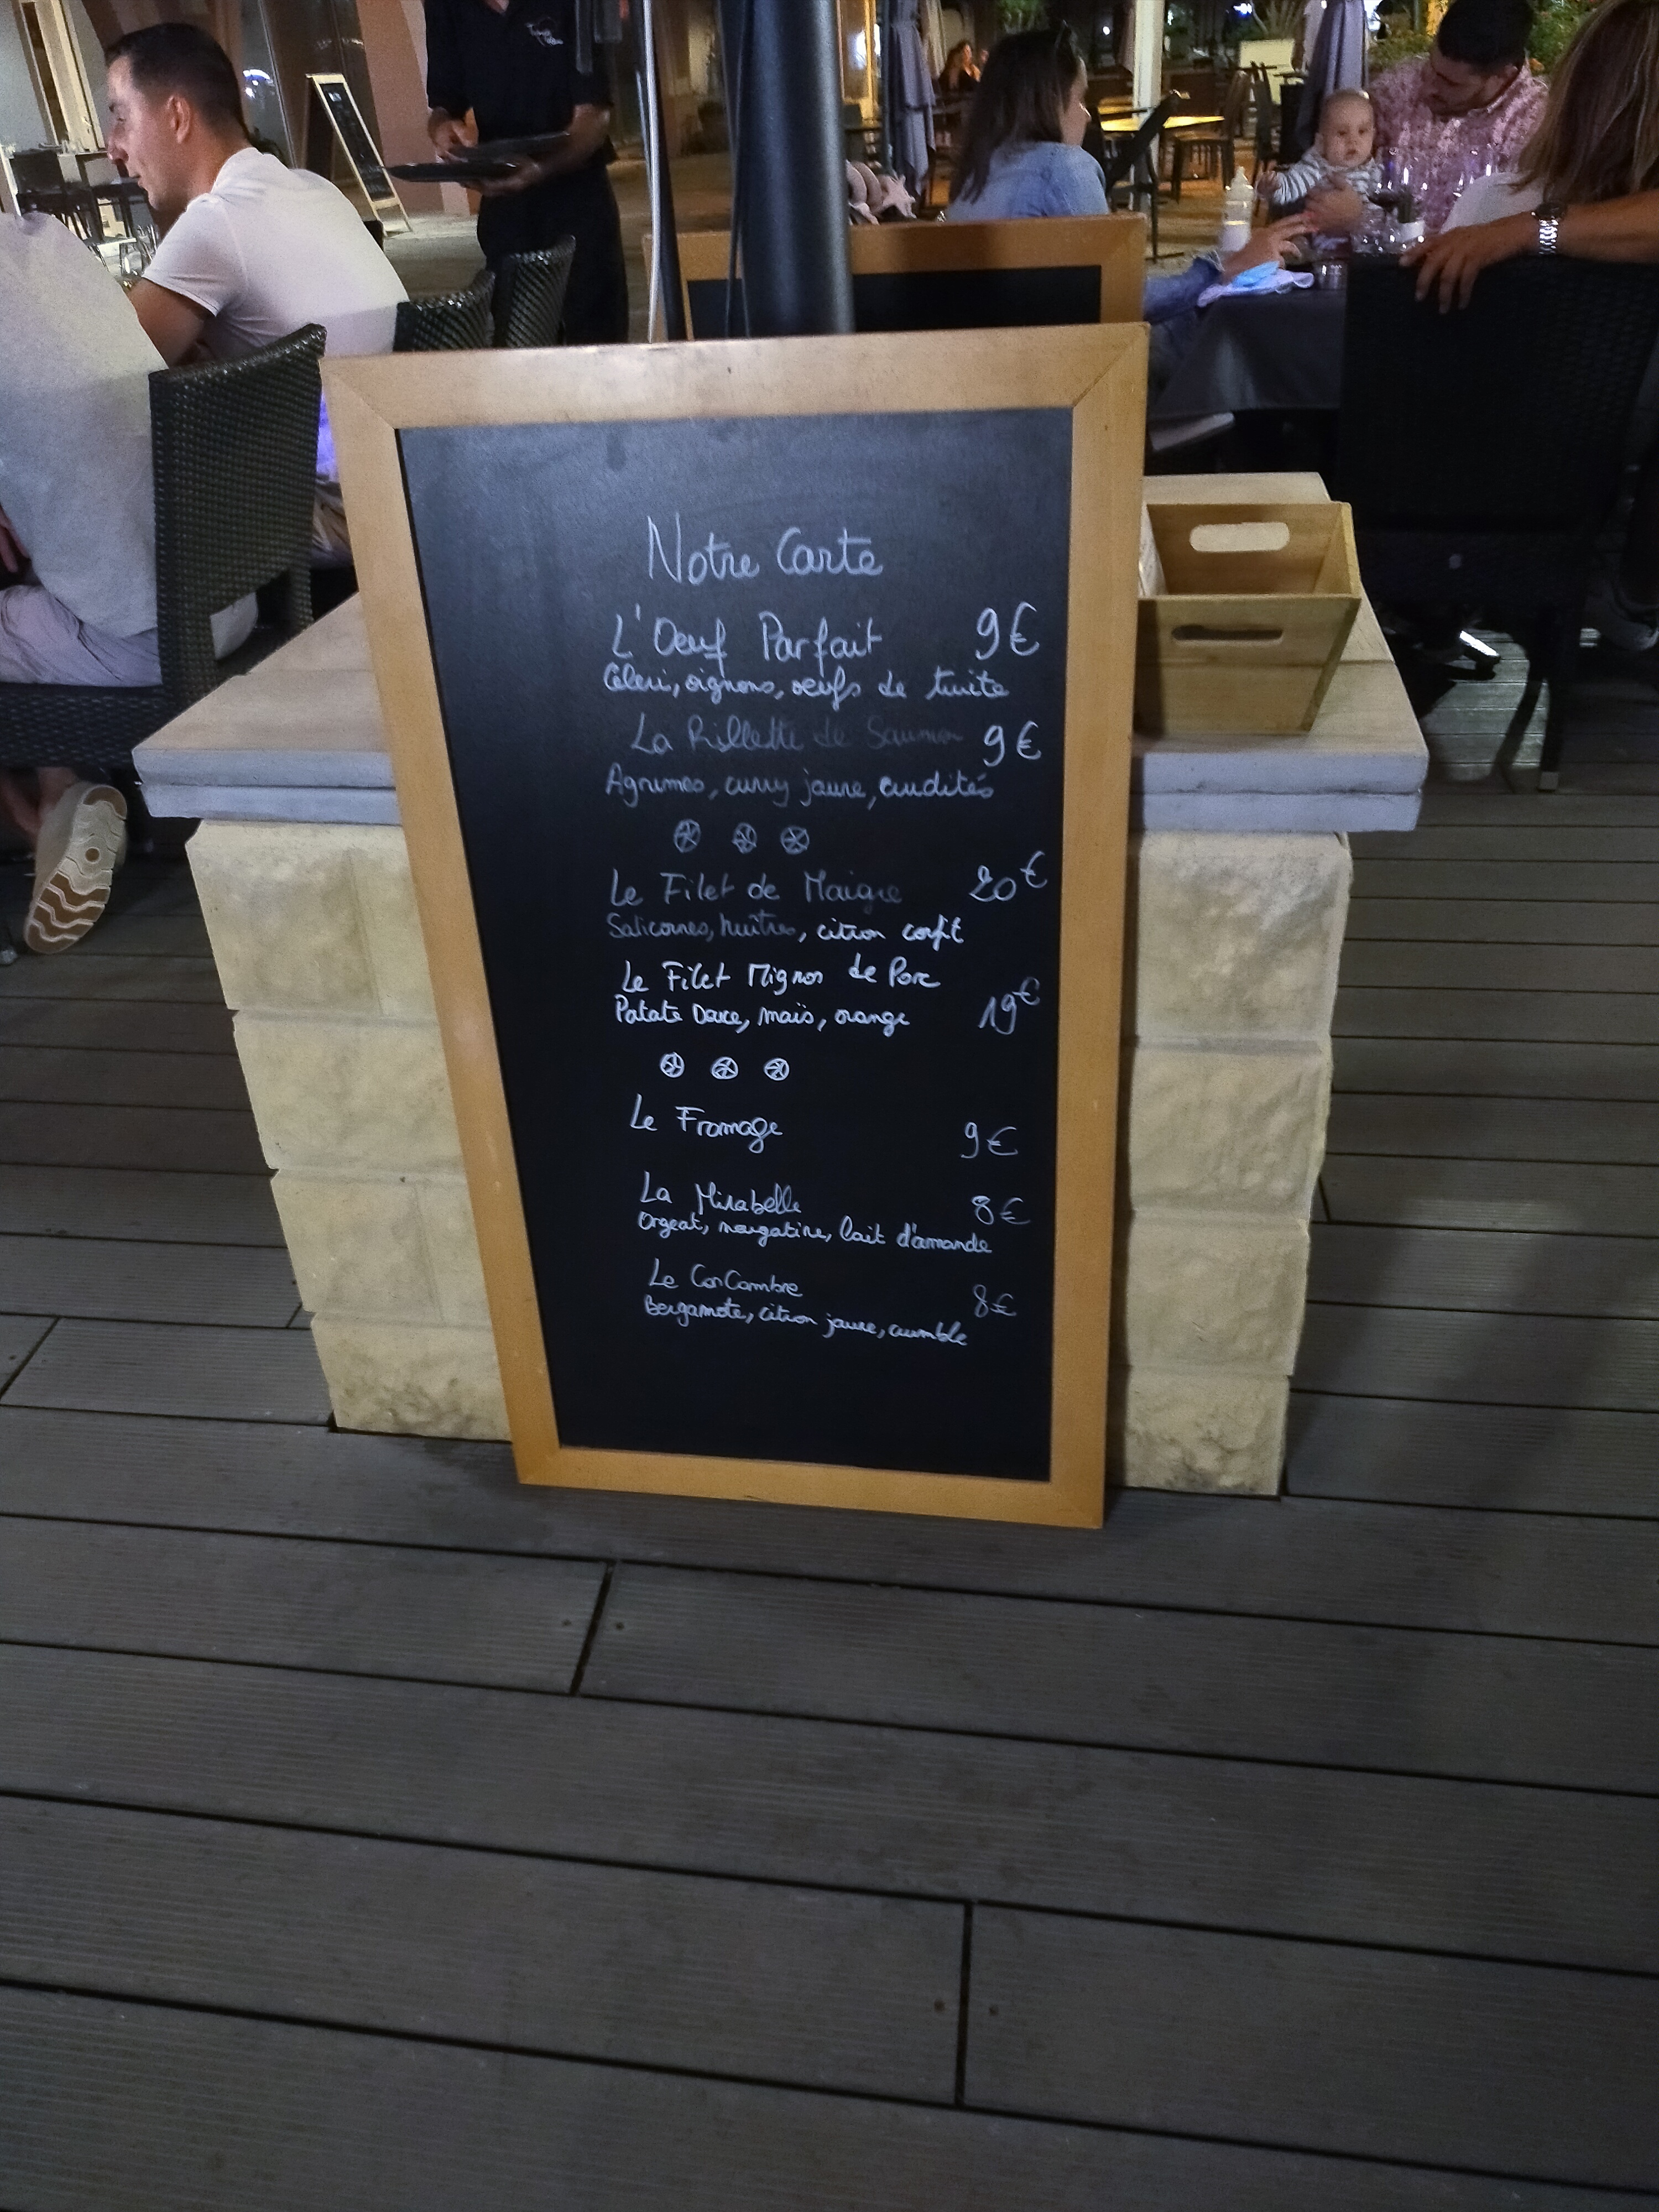 Notre Carte
L'Oeuf Parfait 9€
Céleri, oignons, oeufs de truite
La Rillette de Saumon 9€
Agrumes, curry jaune, crudités
Le Filet de Maigre 20€
Salicornes, huîtres, citron confit
Le Filet Mignon de Porc
Patate Douce, maïs, orange 19€
Le Fromage 9€
La Mirabelle 8€
Orgeat, nougatine, lait d'amande
Le ConCombre 8€
Bergamote, citron jaune, crumble